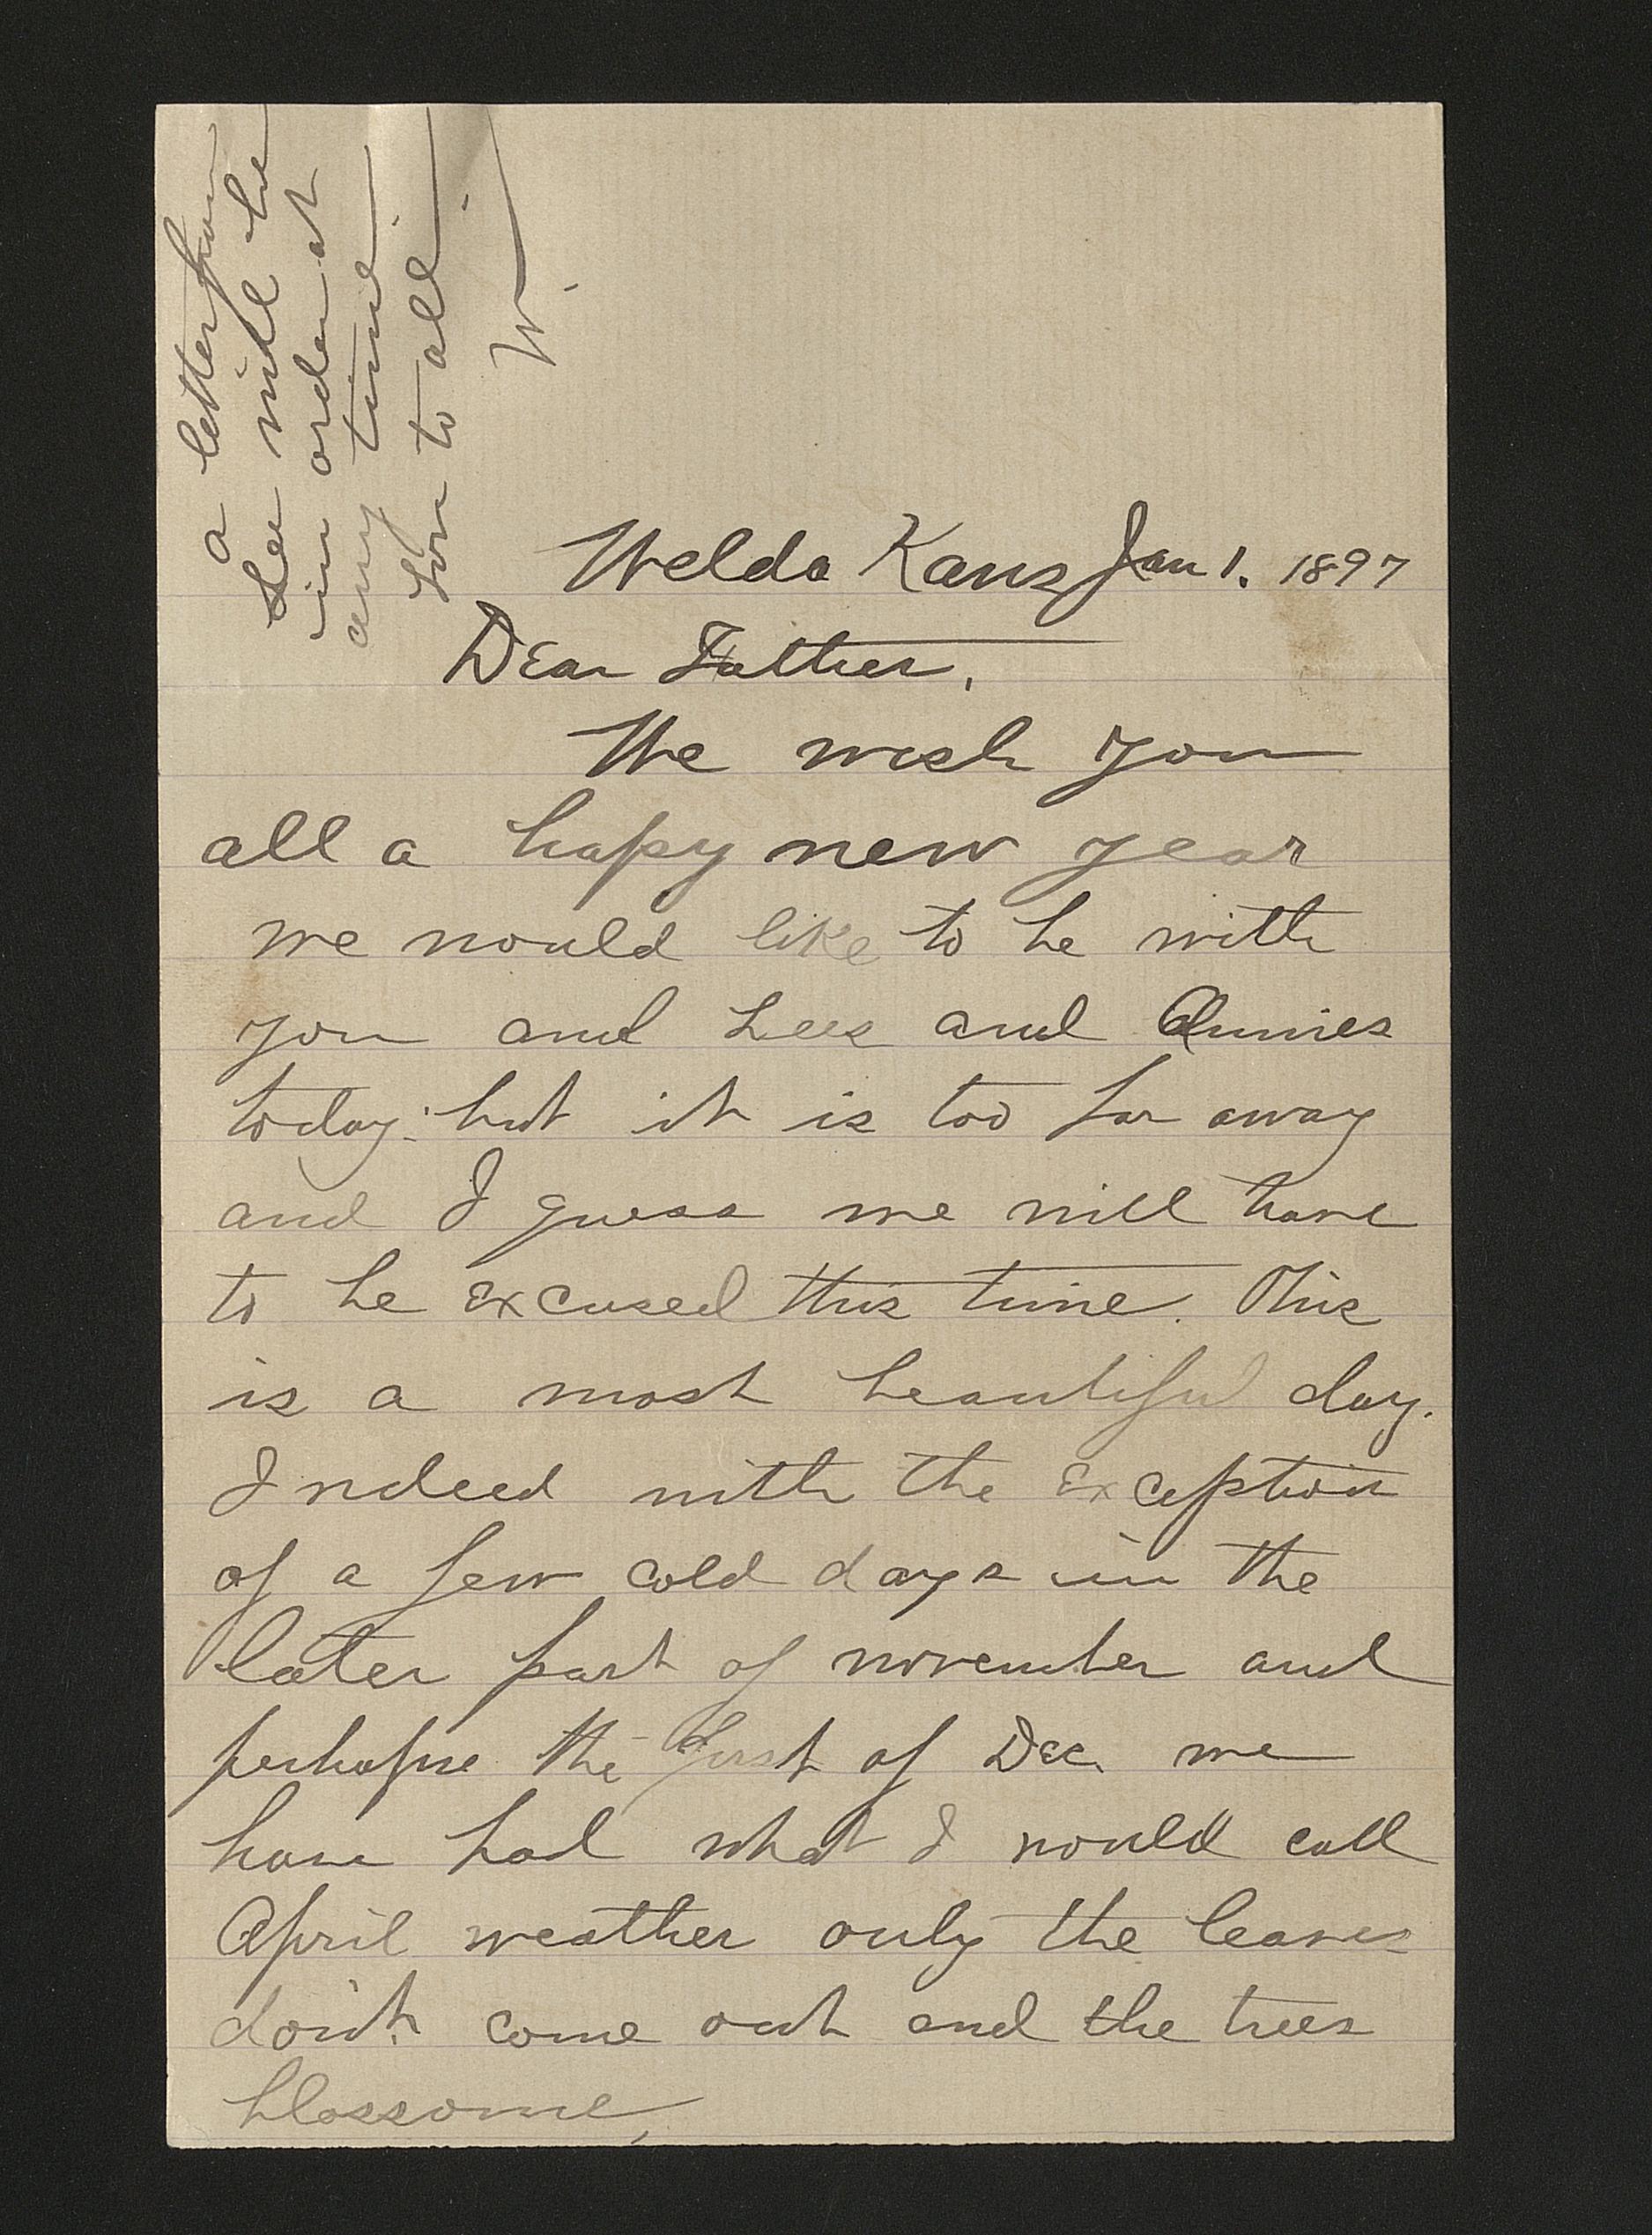 a letter from
Lee will be
in order at
any time
Love to all.
W.
Welda Kans Jan 1. 1897
Dear Father,
We wish you
all a hapy new year
we would like to be with
you and Lees and Annies
today. but it is too far away
and I guess we will have
to be excused this time. This
is a most beautiful day.
Indeed with the exception
of a few cold days in the
later part of november and
perhapse the first of Dec. we
have had what I would call
April weather only the leaves
don't come out and the trees
blossome,